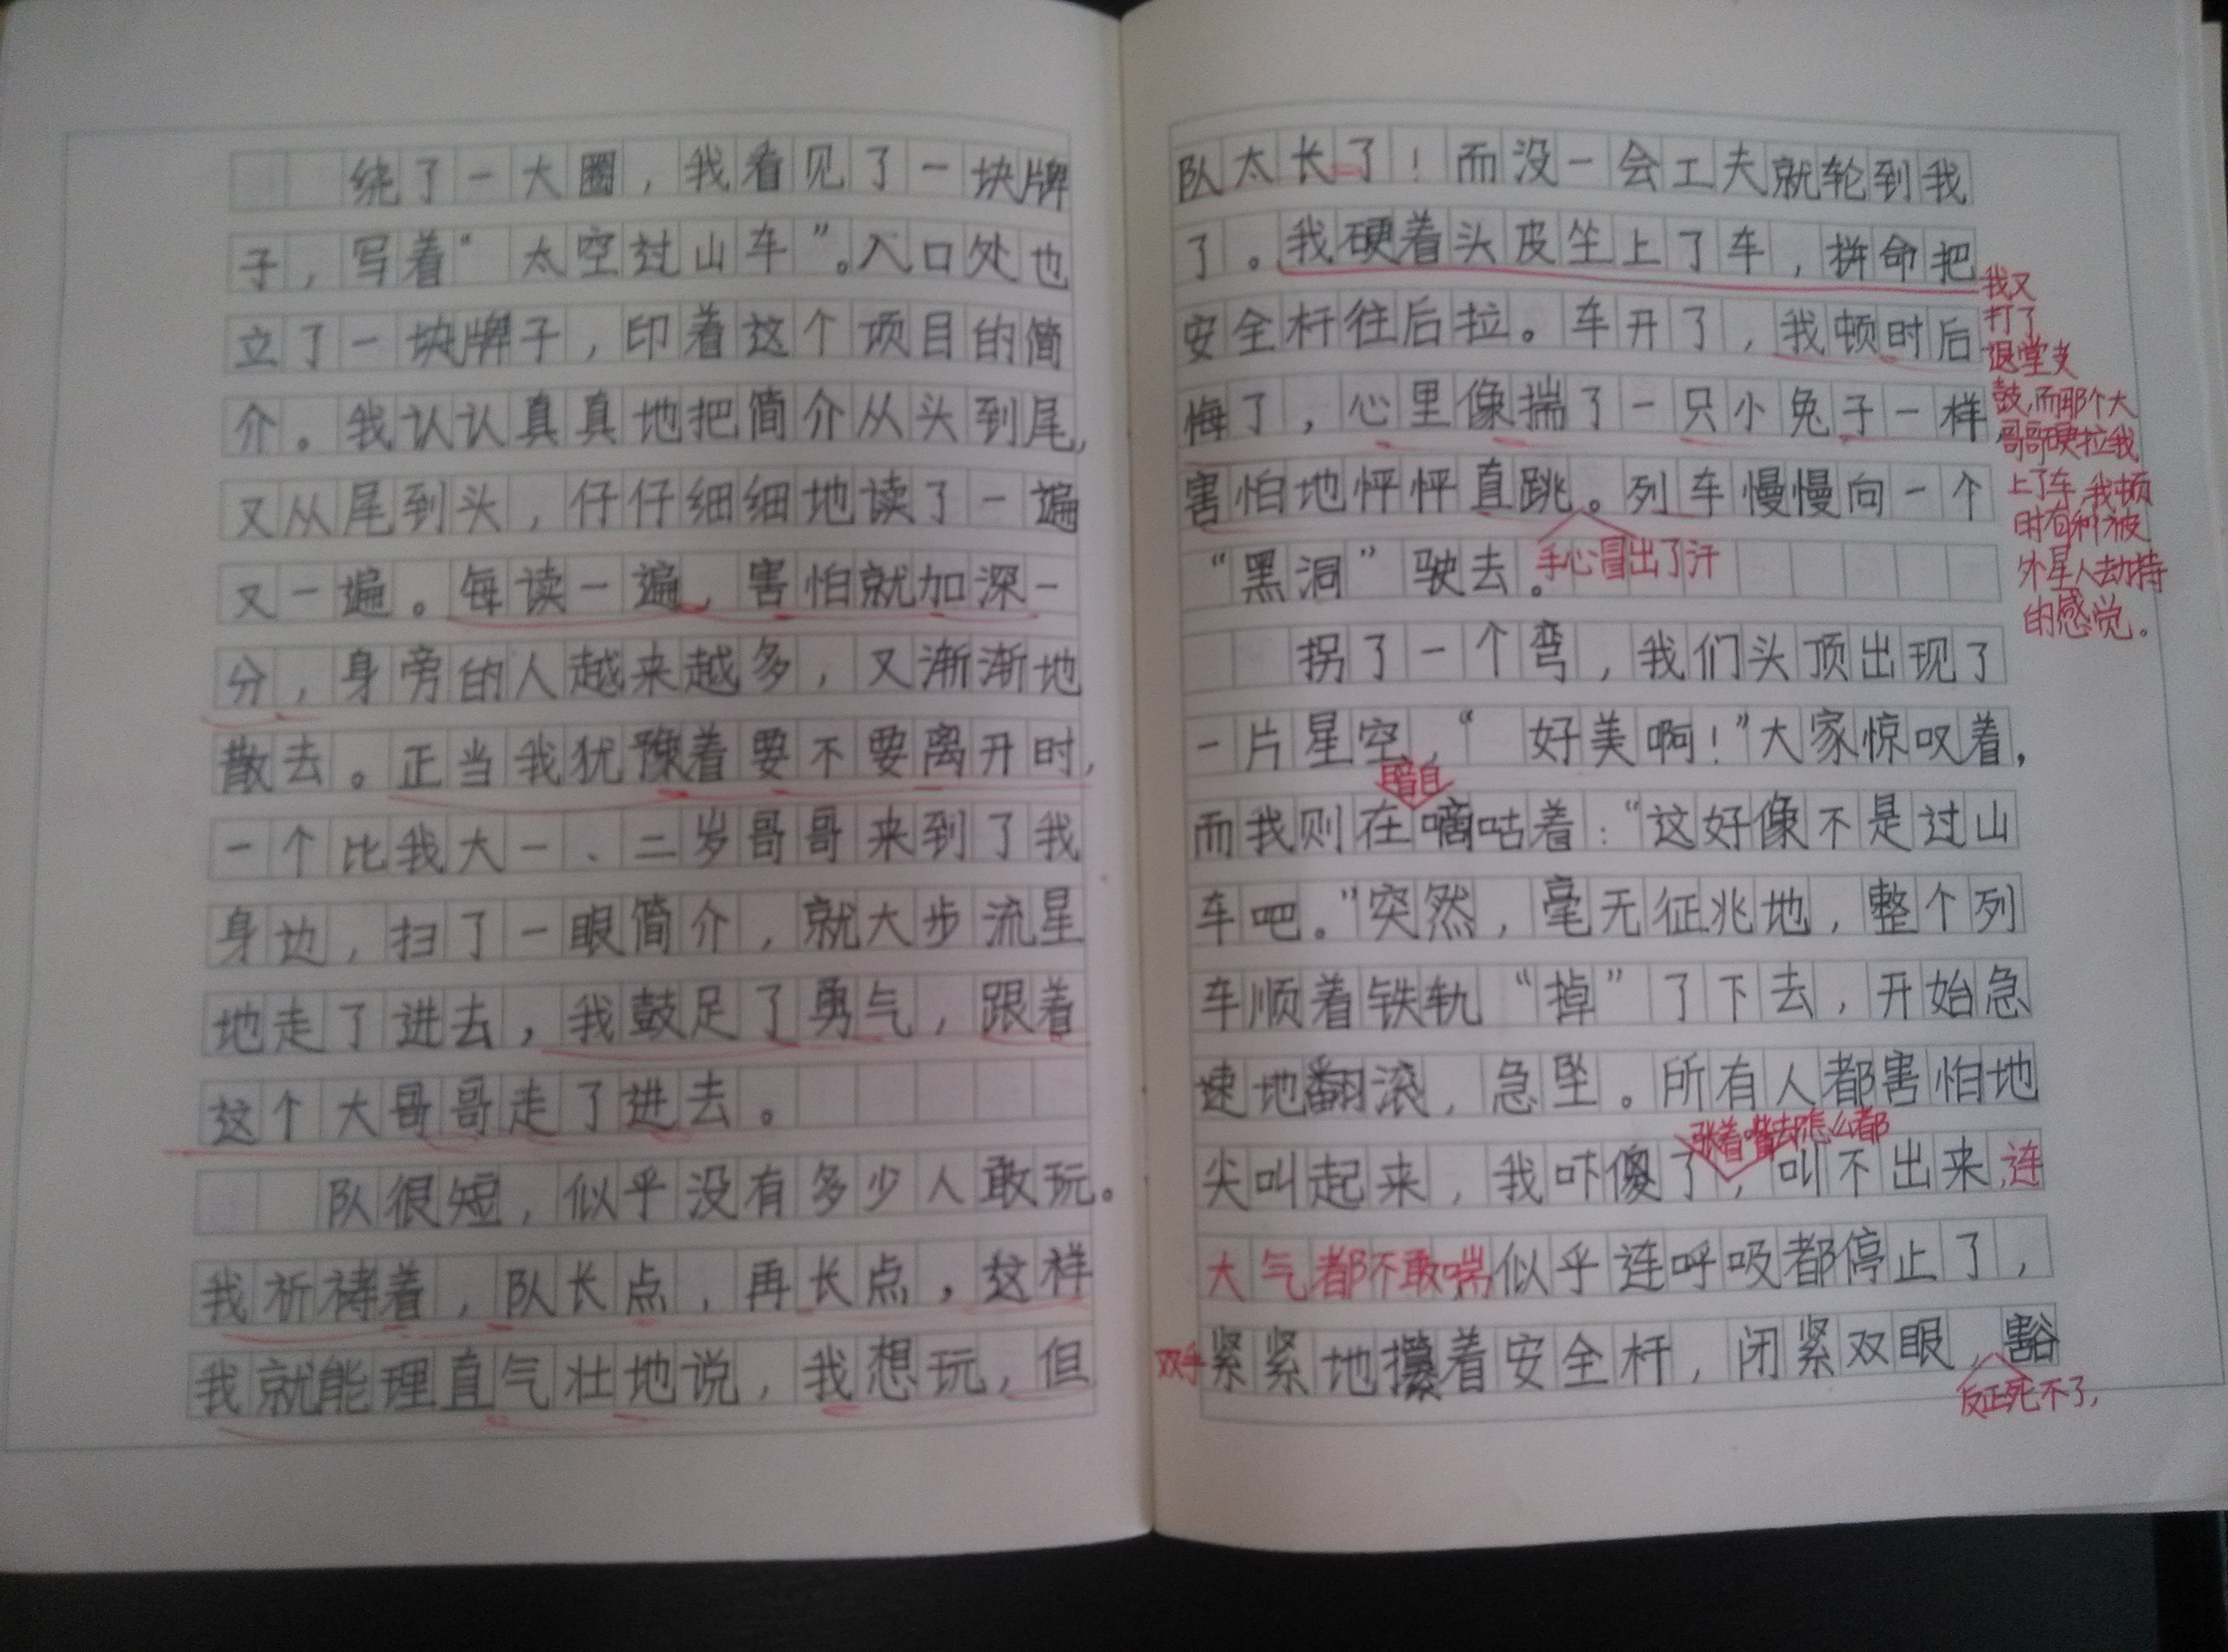 绕了一大圈，我看见了一块牌
子，写着“太空过山车”。入口处也
立了一块牌子，印着这个项目的简
介。我认认真真地把简介从头到尾，
又从尾到头，仔仔细细地读了一遍
又一遍。每读一遍，害怕就加深一
分，身旁的人越来越多，又渐渐地
散去。正当我犹豫着要不要离开时，
一个比我大一、二岁哥哥来到了我
身边，扫了一眼简介，就大步流星
地走了进去，我鼓足了勇气，跟着
这个大哥哥走了进去。
队很短，似乎没有多少人敢玩。
我祈祷着，队长点，再长点，这样
我就能理直气壮地说，我想玩，但
队太长了！而没一会工夫就轮到我
了。我硬着头皮坐上了车，拼命把
安全杆往后拉。车开了，我顿时后
悔了，心里像揣了一只小兔子一样
害怕地怦怦直跳。列车慢慢向一个
“黑洞”驶去。
手心冒出了汗
我又
打了
退堂支
鼓，而那个大
哥哥硬拉我
上了车，我顿
时有种被
外星人劫持
的感觉。
拐了一个弯，我们头顶出现了
一片星空，“好美啊！”大家惊叹着，
暗自
而我则在嘀咕着：“这好像不是过山
车吧。”突然，毫无征兆地，整个列
车顺着铁轨“掉”了下去，开始急
速地翻滚，急坠。所有人都害怕地
张着嘴去怎么都
尖叫起来，我吓傻了，叫不出来，连
大气都不敢喘似乎连呼吸都停止了，
双手紧紧地攥着安全杆，闭紧双眼，豁
反正死不了，